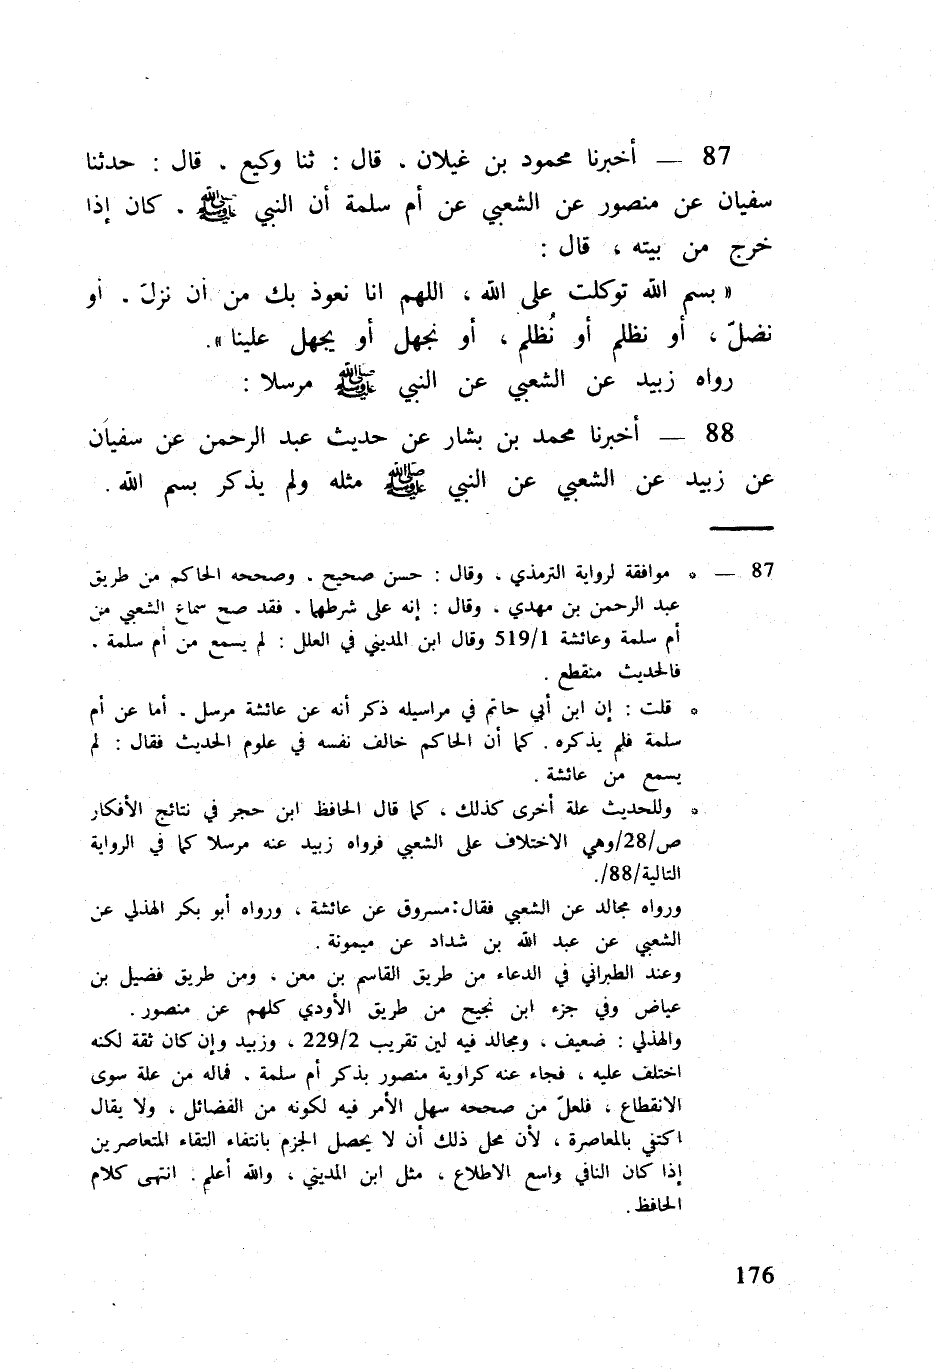 87 — أخبرنا محمود بن غيلان . قال : ثنا وكيع . قال : حدثنا
سفيان عن منصور عن الشعبي عن أم سلمة أن النبي ﷺ . كان إذا
خرج من بيته ، قال :
« بسم الله توكلت على الله ، اللهم انا نعوذ بك من أن نزلّ . أو
نضلّ ، أو نظلم أو نُظلم ، أو نجهل أو يجهل علينا ».
رواه زبيد عن الشعبي عن النبي ﷺ مرسلا :
88 — أخبرنا محمد بن بشار عن حديث عبد الرحمن عن سفيان
عن زبيد عن الشعبي عن النبي ﷺ مثله ولم يذكر بسم الله .
87 — * موافقة لرواية الترمذي ، وقال : حسن صحيح . وصححه الحاكم من طريق
عبد الرحمن بن مهدي ، وقال : إنه على شرطهما . فقد صح سماع الشعبي من
أم سلمة وعائشة 519/1 وقال ابن المديني في العلل : لم يسمع من أم سلمة .
فالحديث منقطع .
* قلت : إن ابن أبي حاتم في مراسيله ذكر أنه عن عائشة مرسل . أما عن أم
سلمة فلم يذكره . كما أن الحاكم خالف نفسه في علوم الحديث فقال : لم
يسمع من عائشة .
* وللحديث علة أخرى كذلك ، كما قال الحافظ ابن حجر في نتائج الأفكار
ص/28/وهي الاختلاف على الشعبي فرواه زبيد عنه مرسلا كما في الرواية
التالية/88/.
ورواه مجالد عن الشعبي فقال:مسروق عن عائشة ، ورواه أبو بكر الهذلي عن
الشعبي عن عبد الله بن شداد عن ميمونة .
وعند الطبراني في الدعاء من طريق القاسم بن معن ، ومن طريق فضيل بن
عياض وفي جزء ابن نجيح من طريق الأودي كلهم عن منصور .
والهذلي : ضعيف ، ومجالد فيه لين تقريب 229/2 ، وزبيد وإن كان ثقة لكنه
اختلف عليه ، فجاء عنه كراوية منصور بذكر أم سلمة . فماله من علة سوى
الانقطاع ، فلعلّ من صححه سهل الأمر فيه لكونه من الفضائل ، ولا يقال
اكتفي بالمعاصرة ، لأن محل ذلك أن لا يحصل الجزم بانتفاء التقاء المتعاصرين
إذا كان النافي واسع الاطلاع ، مثل ابن المديني ، والله أعلم . انتهى كلام
الحافظ .
176